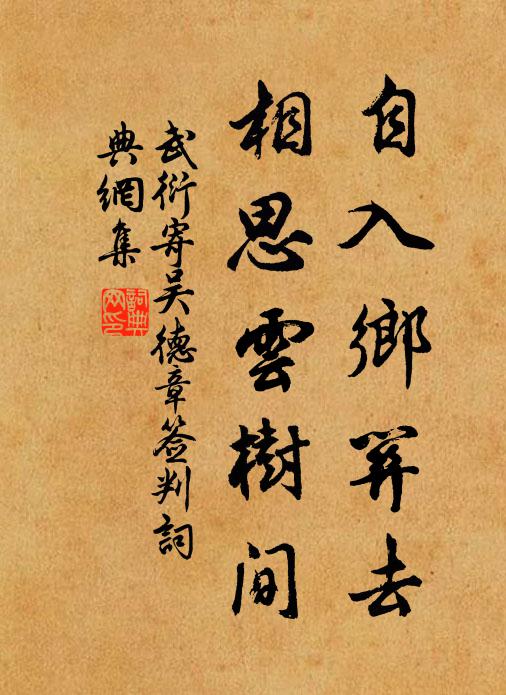 自入鄉關去
相思雲樹間
武衍寄吴德章签判詞
典網集
詞典
网印